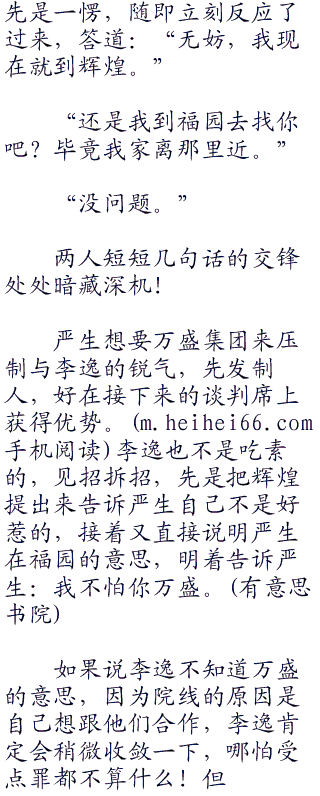 先是一愣，随即立刻反应了
过来，答道：“无妨，我现
在就到辉煌。”
“还是我到福园去找你
吧？毕竟我家离那里近。”
“没问题。”
两人短短几句话的交锋
处处暗藏深机！
严生想要万盛集团来压
制与李逸的锐气，先发制
人，好在接下来的谈判席上
获得优势。(m.heihei66.com
手机阅读)李逸也不是吃素
的，见招拆招，先是把辉煌
提出来告诉严生自己不是好
惹的，接着又直接说明严生
在福园的意思，明着告诉严
生：我不怕你万盛。(有意思
书院)
如果说李逸不知道万盛
的意思，因为院线的原因是
自己想跟他们合作，李逸肯
定会稍微收敛一下，哪怕受
点罪都不算什么！但